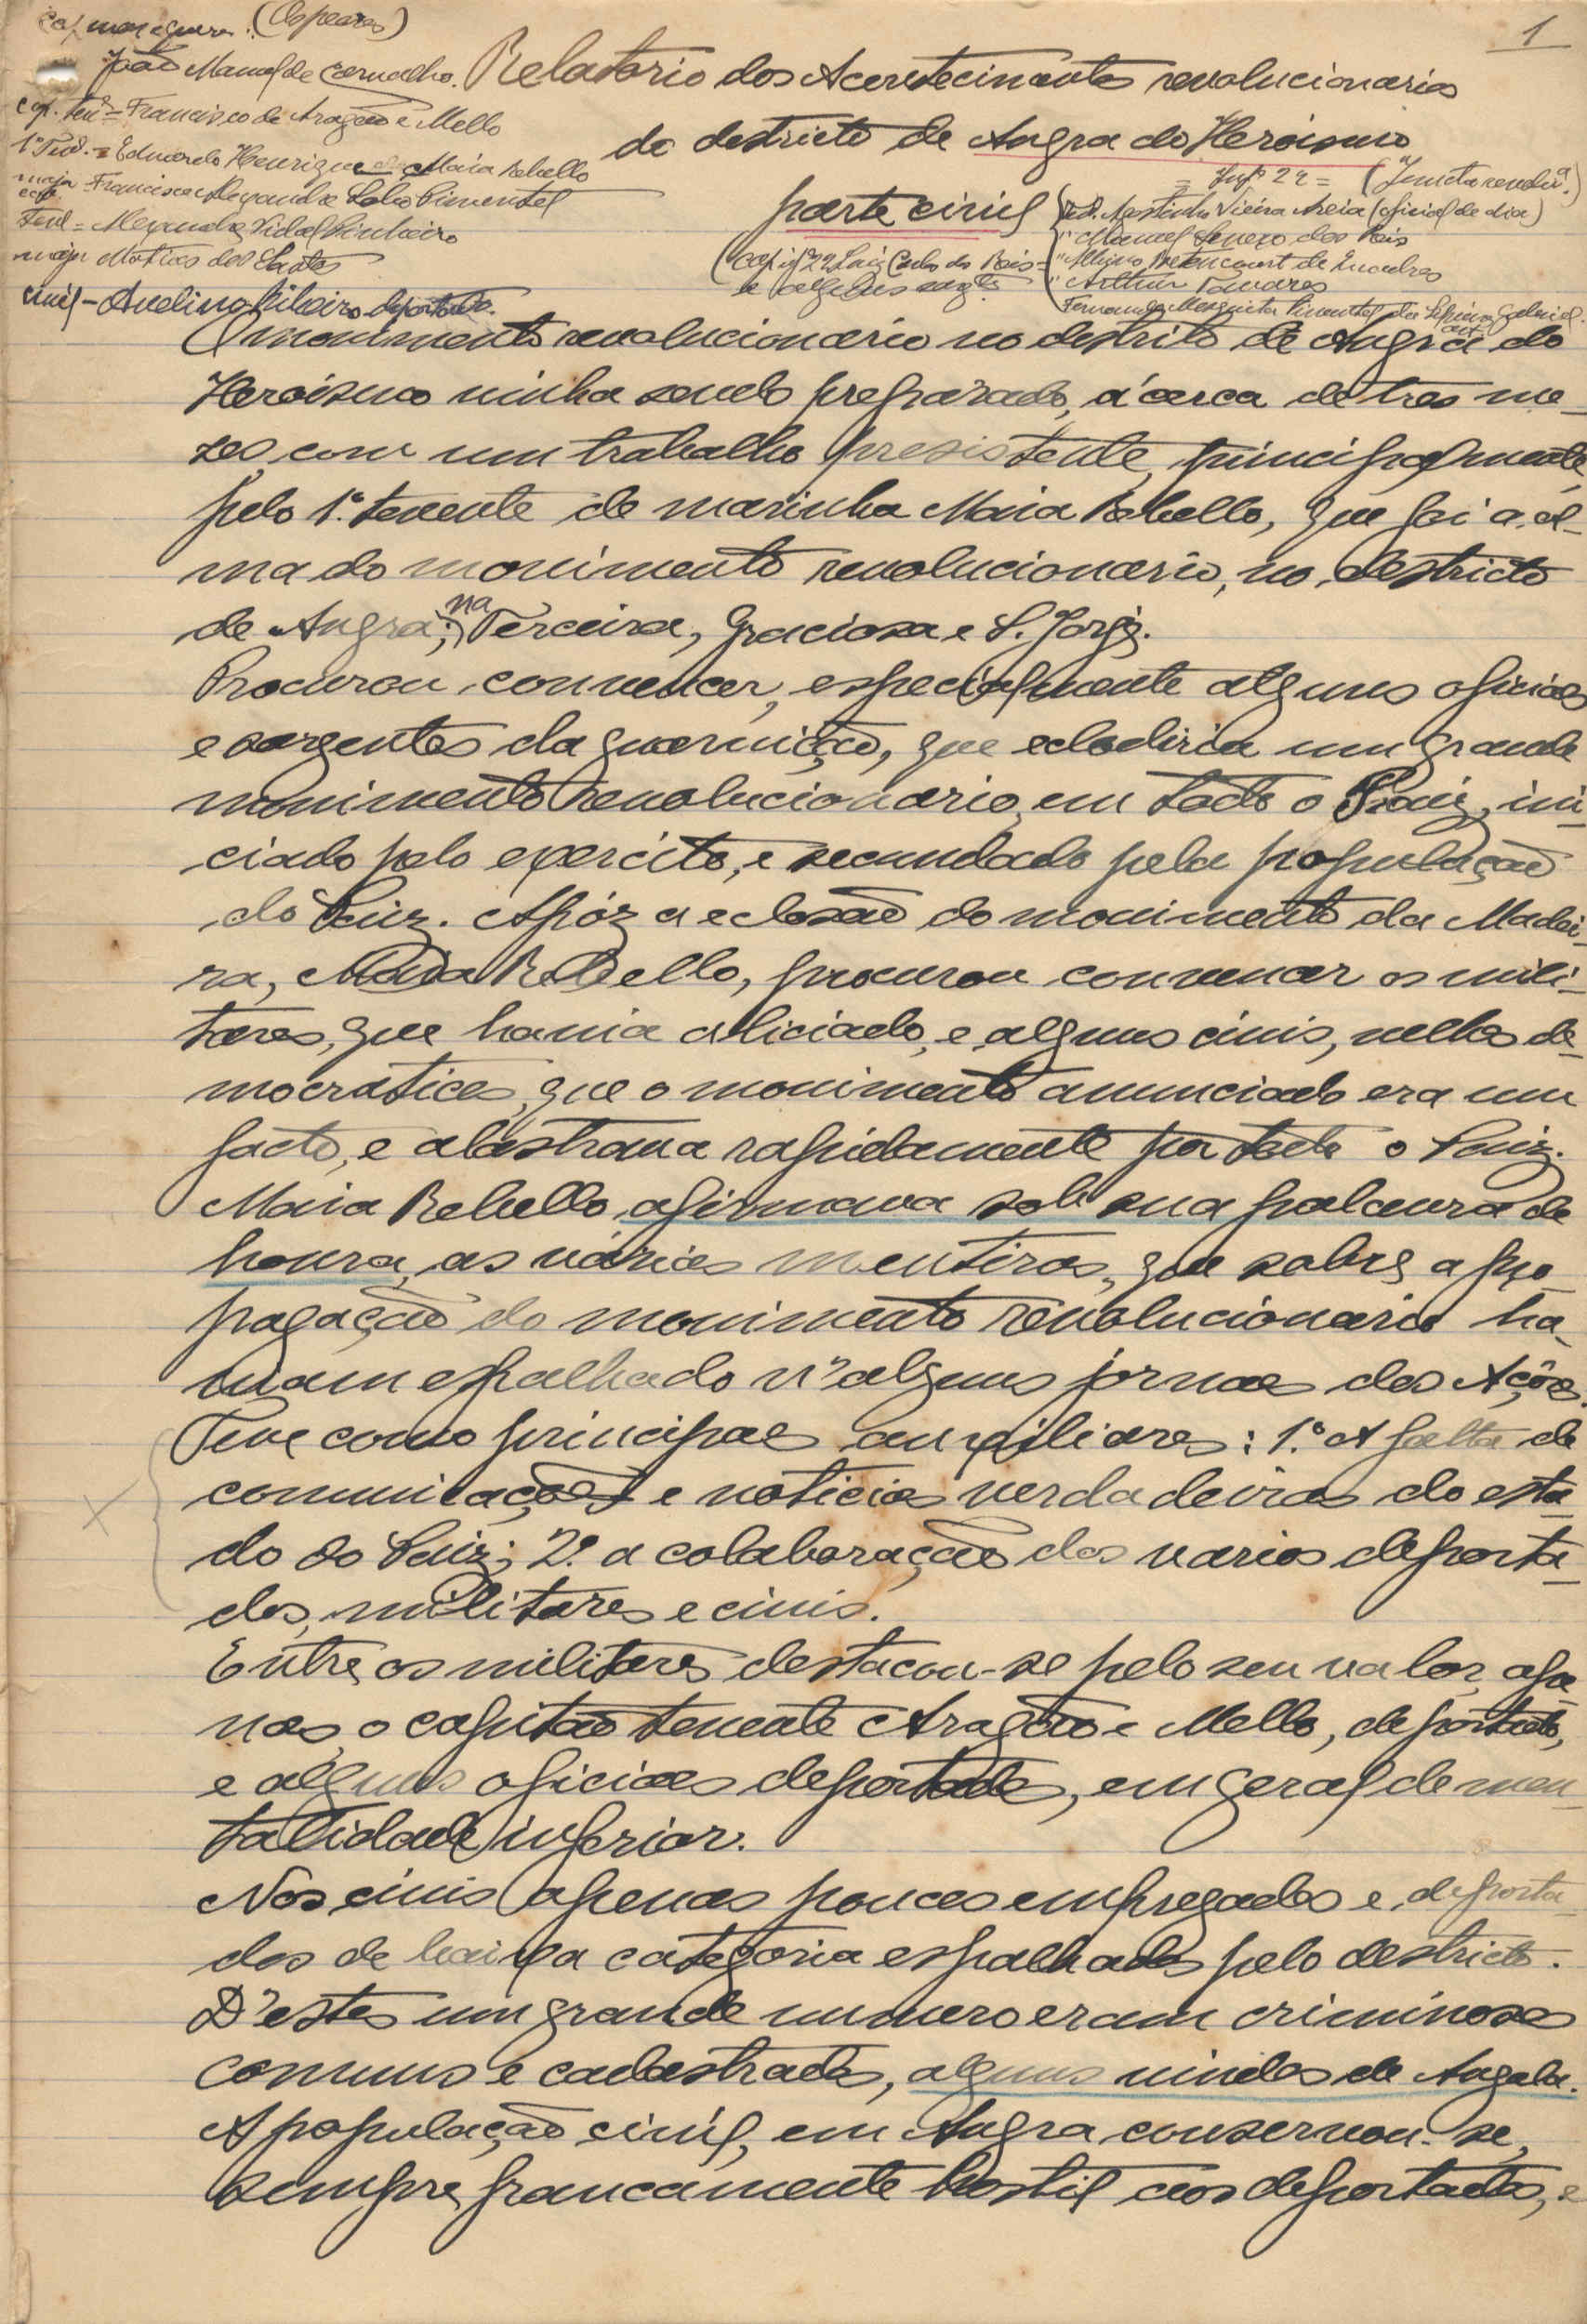 1
cap. mar e guerra
João Manoel de Carvalho.
cap. ten.= Francisco de Aragão e Mello
1º Ten. = Eduardo Henrique Maia Rebello
major Francisco Alexandre Lobo Pimentel
cap.
Tent = Alexandre Vidal Pinheiro
major Matias dos Santos
civil - Avelino Ribeiro deportado.
Relatorio dos Acontecimentos revolucionarios
do destricto de Angra do Heroismo
= Infª 22 =
parte civil
Vieira Areia (oficial de dia)
" Manuel dos Reis
" Betencourt de
" Arthur Tavares
(cap. infª 22 Luiz do Reis =
e alguns sargtos
O movimento revolucionario no destrito de Angra do
Heroismo vinha sendo preparado, á cerca de tres me-
zes, com um trabalho presistente, principalmente
pelo 1.º tenente de marinha Maia Rebello, que foi a al-
ma do movimento revolucionario, no destricto
de Angra; na Terceira, Graciosa e S. Jorge.
Procurou convencer, especialmente alguns oficiaes
e sargentos da guarnição, que eclodiria um grande
movimento revolucionario, em todo o Paiz, ini-
ciado pelo exercito, e secundado pela população
do Paiz. Apóz a eclosão do movimento da Madei-
ra, Maia Rebello, procurou convencer os mili-
tares, que havia aliciado, e alguns civis, velhos de-
mocraticos, que o movimento anunciado era um
facto, e alastrava rapidamente por todo o Paiz.
Maia Rebello, afirmava sob sua palavra de
honra, as várias mentiras, que sobre a pro-
pagação do movimento revolucionario ha-
viam espalhado n'alguns jornaes dos Açôres.
Teve como principaes auxiliares: 1.º A falta de
comunicações e noticias verdadeiras do esta-
do do Paiz; 2.º a colaboração dos varios deporta-
dos, militares e civis.
Entre os militares destacou-se pelo seu valor, ape-
nas, o capitão tenente Aragão e Mello, deportado,
e alguns oficiaes deportados, em geral de men-
talidade inferior.
Nos civis apenas poucos empregados e, deporta-
dos de baixa categoria espalhados pelo destricto.
D'estes um grande numero eram criminosos
comuns e cadastrados, alguns vindos de Angola.
A população civil, em Angra conservou-se,
sempre, francamente hostil aos deportados, e